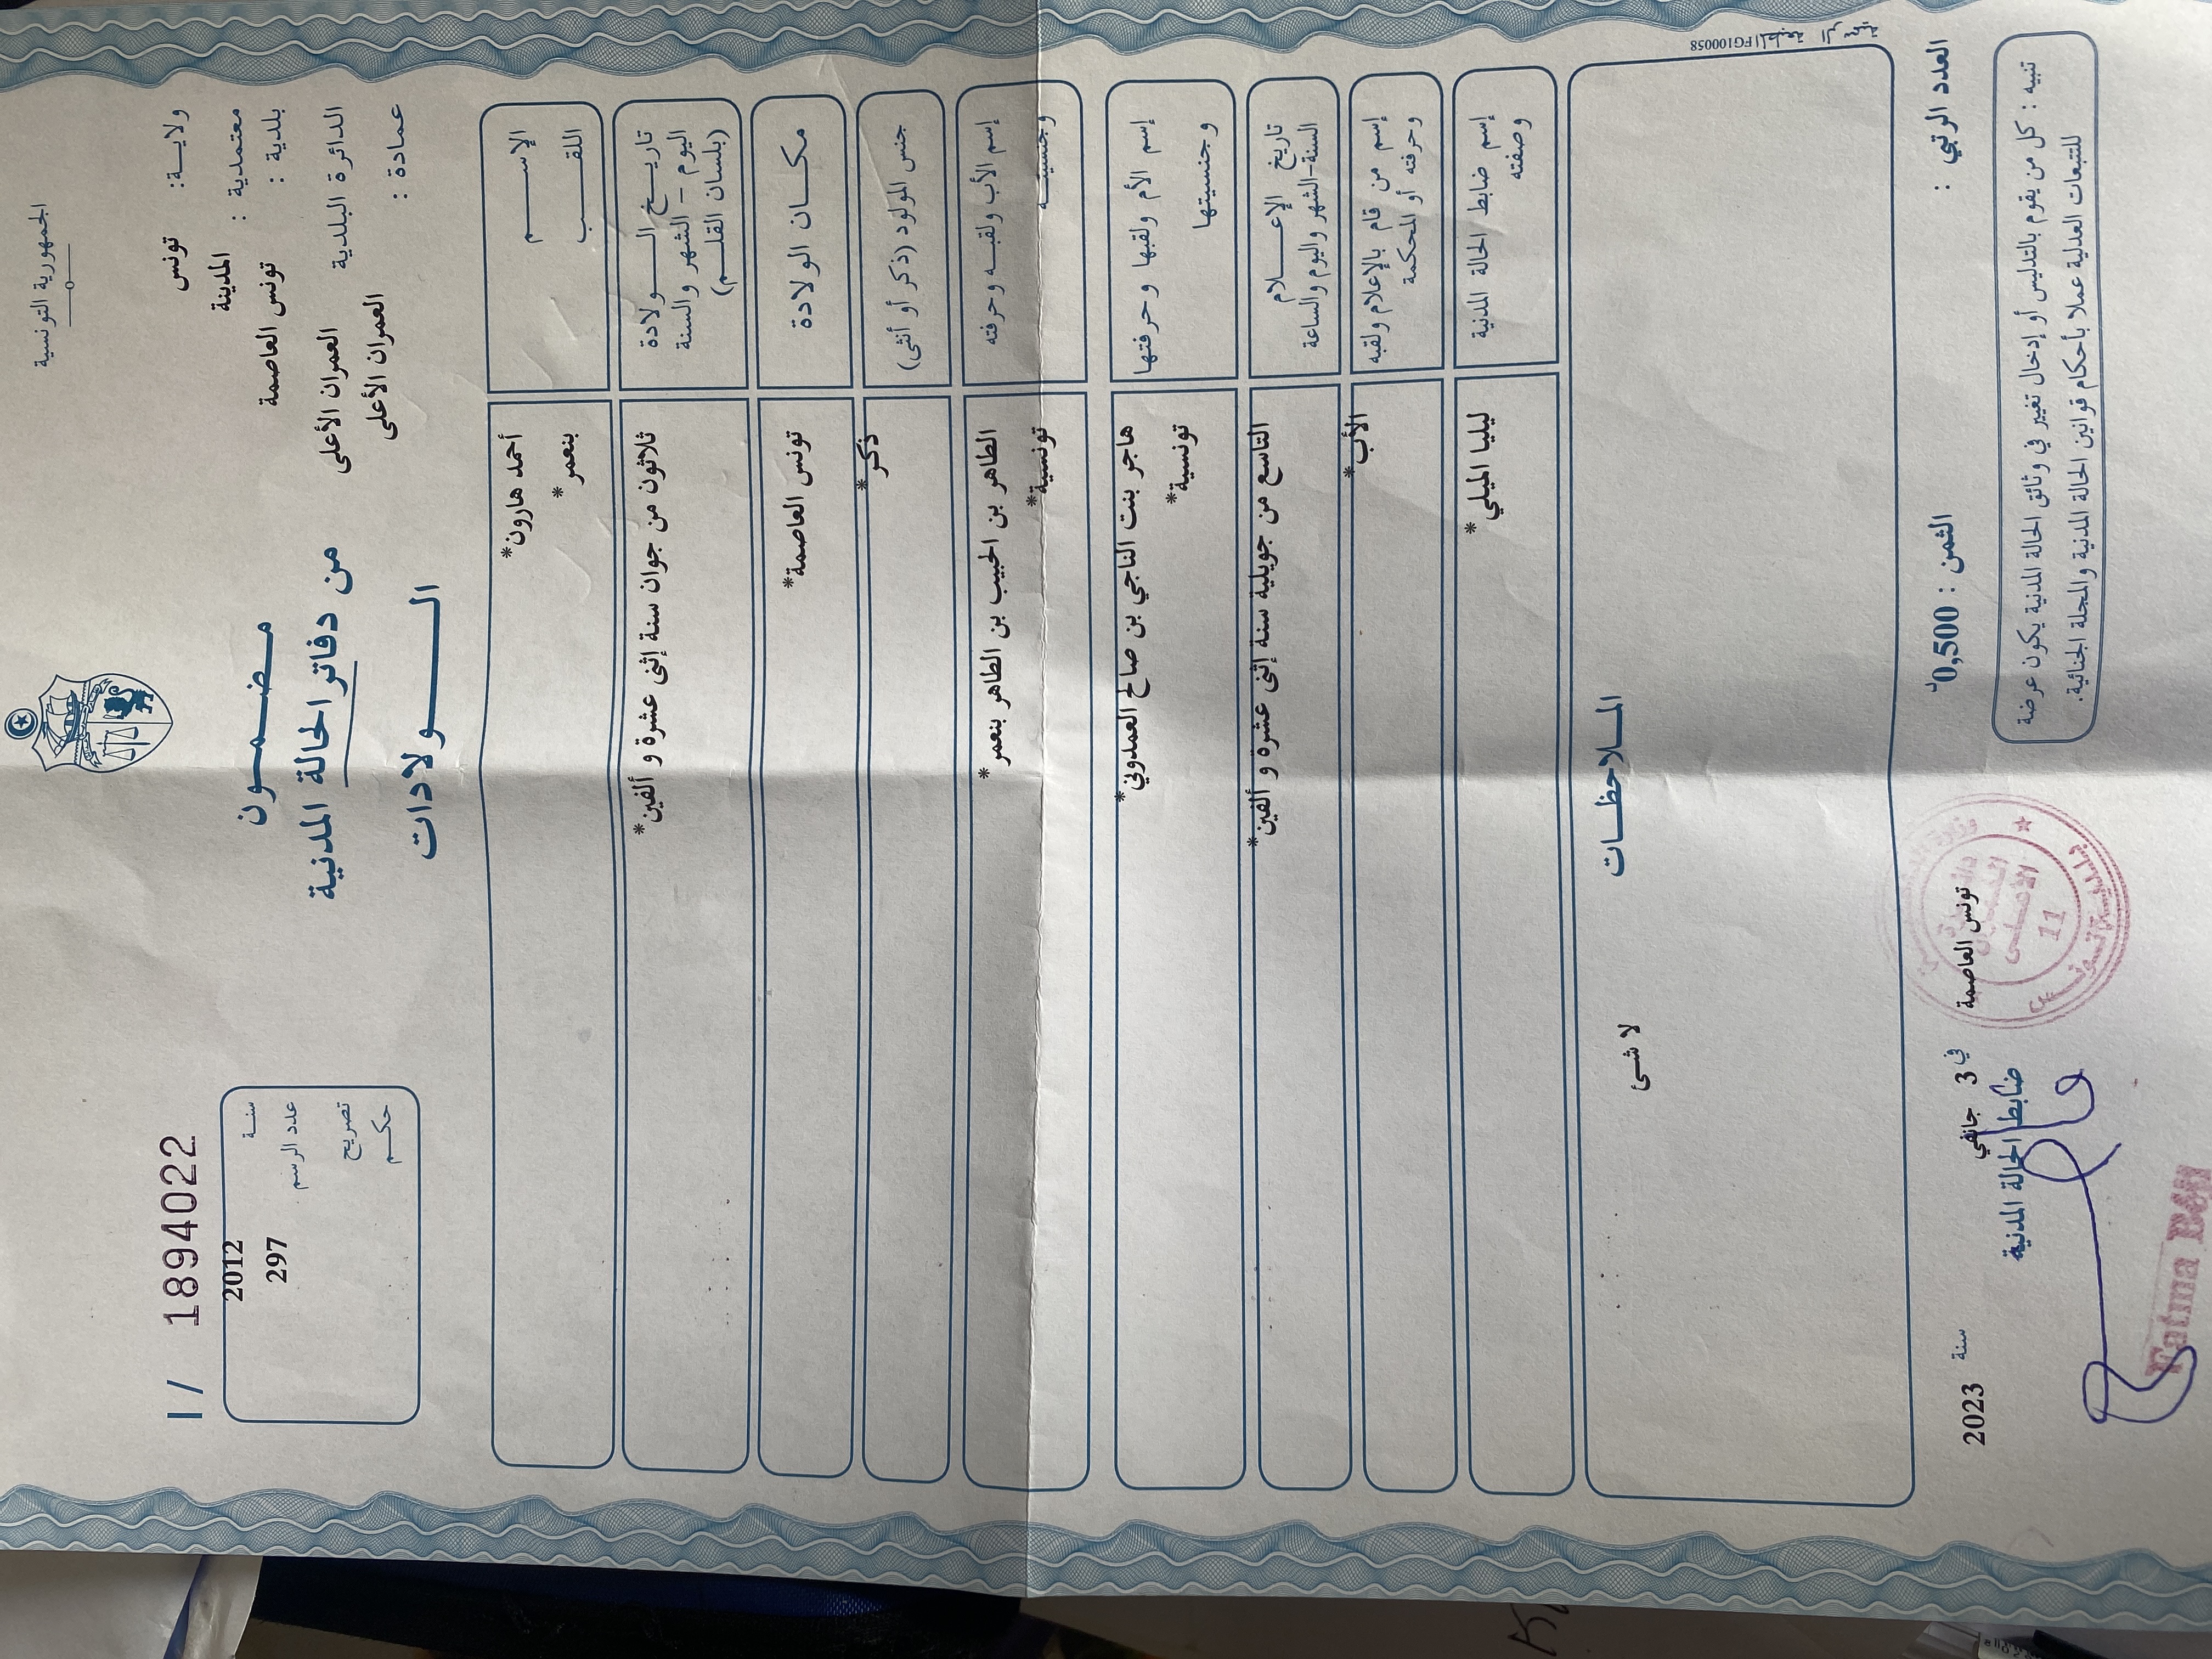 الجمهورية التونسية
ولاية: تونس
معتمدية : المدينة
بلدية : تونس العاصمة
الدائرة البلدية العمران الأعلى
عمادة : العمران الأعلى
مضمون
من دفاتر الحالة المدنية
الولادات
I / 1894022
سنة 2012
عدد الرسم 297
تصريح
حكم
الإسم أحمد هارون*
اللقب بنعمر*
تاريخ الولادة ثلاثون من جوان سنة إثنى عشرة و ألفين*
اليوم – الشهر والسنة
(بلسان القلم)
مكان الولادة تونس العاصمة*
جنس المولود (ذكر أو أنثى) ذكر*
إسم الأب ولقبه وحرفته الطاهر بن الحبيب بن الطاهر بنعمر*
وجنسيته تونسية*
إسم الأم ولقبها وحرفتها هاجر بنت الناجي بن صالح العمدوني*
وجنسيتها تونسية*
تاريخ الإعلام التاسع من جويلية سنة إثنى عشرة و ألفين*
السنة-الشهر واليوم والساعة
إسم من قام بالإعلام ولقبه الأب*
وحرفته أو المحكمة
إسم ضابط الحالة المدنية ليليا الميلي*
وصفته
الملاحظات
لا شئ
FG100058
العدد الرتبي :
الثمن : 0,500د
تونس العاصمة في 3 جانفي سنة 2023
ضابط الحالة المدنية
تنبيه : كل من يقوم بالتدليس أو إدخال تغيير في وثائق الحالة المدنية يكون عرضة
للتتبعات العدلية عملا بأحكام قوانين الحالة المدنية والمجلة الجنائية.
الأعلى
11
Fatma